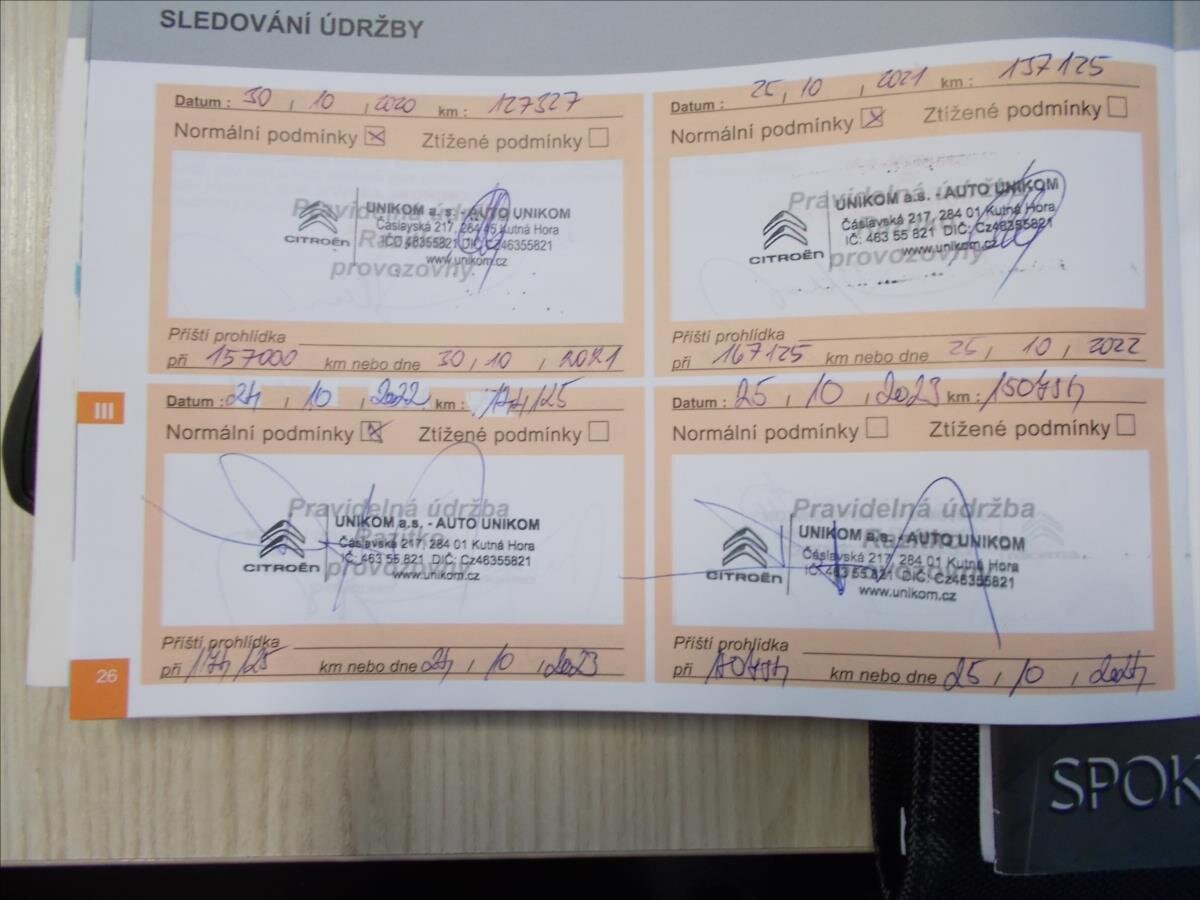 SLEDOVÁNÍ ÚDRŽBY
Datum : 30 , 10 , 2020 km : 127327
Normální podmínky Ztížené podmínky
Pravidelná údržba
UNIKOM a. s. - AUTO UNIKOM
Čáslavská 217, 284 45 Kutná Hora
IČO 46355821 DIČ: CZ46355821
www.unikom.cz
CITROËN
provozovny
Příští prohlídka
při 157000 km nebo dne 30 , 10 , 2021
Datum : 25 , 10 , 2021 km : 137125
Normální podmínky Ztížené podmínky
Pravidelná údržba
UNIKOM a.s. - AUTO UNIKOM
Čáslavská 217, 284 01 Kutná Hora
IČ: 463 55 821 DIČ: Cz46355821
www.unikom.cz
CITROËN
provozovny
Příští prohlídka
při 167125 km nebo dne 25 , 10 , 2022
III
Datum : 24 , 10 , 2022 km :
Normální podmínky Ztížené podmínky
Pravidelná údržba
Razítko
UNIKOM a.s. - AUTO UNIKOM
Čáslavská 217, 284 01 Kutná Hora
IČ: 463 55 821 DIČ: Cz46355821
www.unikom.cz
CITROËN
provozovny
Příští prohlídka
při km nebo dne 24 , 10 , 2023
Datum : 25 , 10 , 2023 km : 150794
Normální podmínky Ztížené podmínky
Pravidelná údržba
Razítko
UNIKOM a.s. - AUTO UNIKOM
Čáslavská 217, 284 01 Kutná Hora
IČ: 463 55 821 DIČ: Cz46355821
www.unikom.cz
CITROËN
provozovny
Příští prohlídka
při km nebo dne 25 , 10 , 2024
26
SPOK